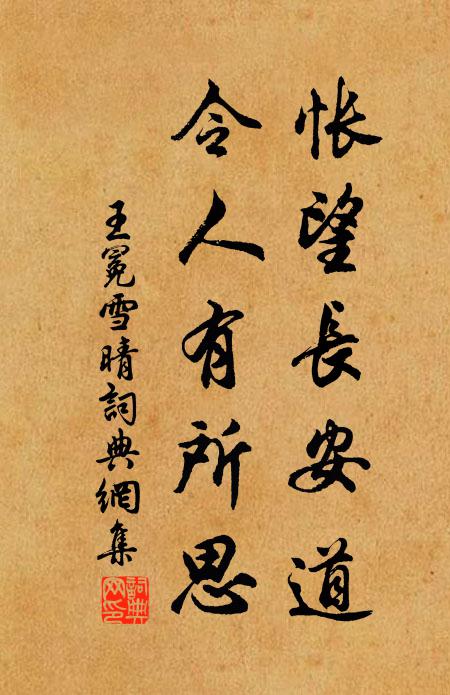 悵望長安道
令人有所思
王冕雪晴詞典網集
詞典網印